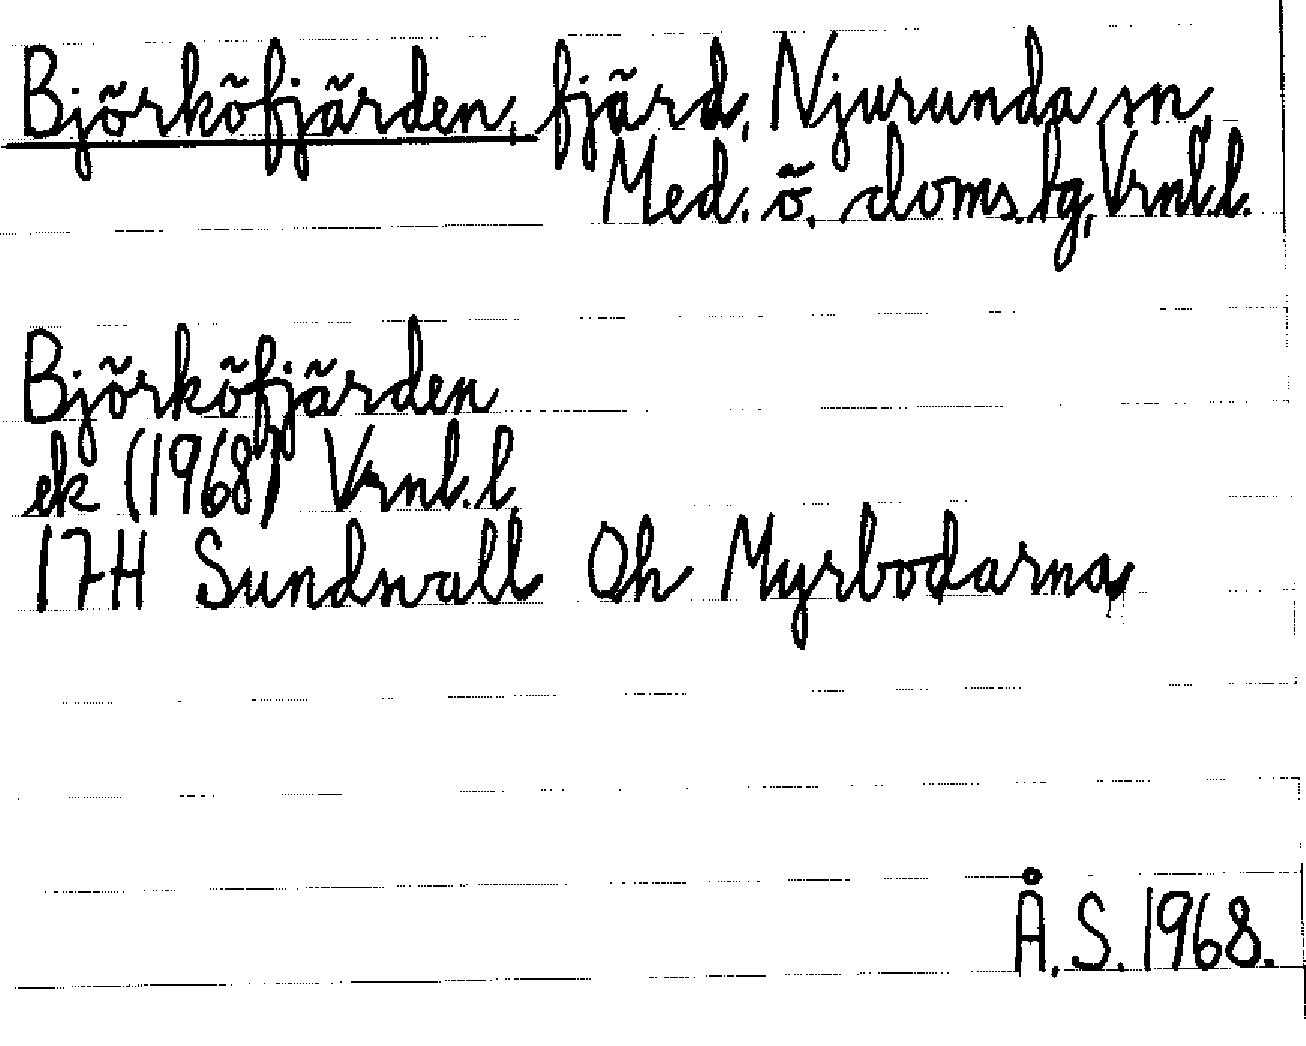 Björköfjärden, fjärd, Njurunda sn,
Med. ö. doms.tg, Vrnl.l.
Björköfjärden
ek (1968) Vrnl.l.
17H Sundsvall Oh Myrbodarna
Å.S. 1968.